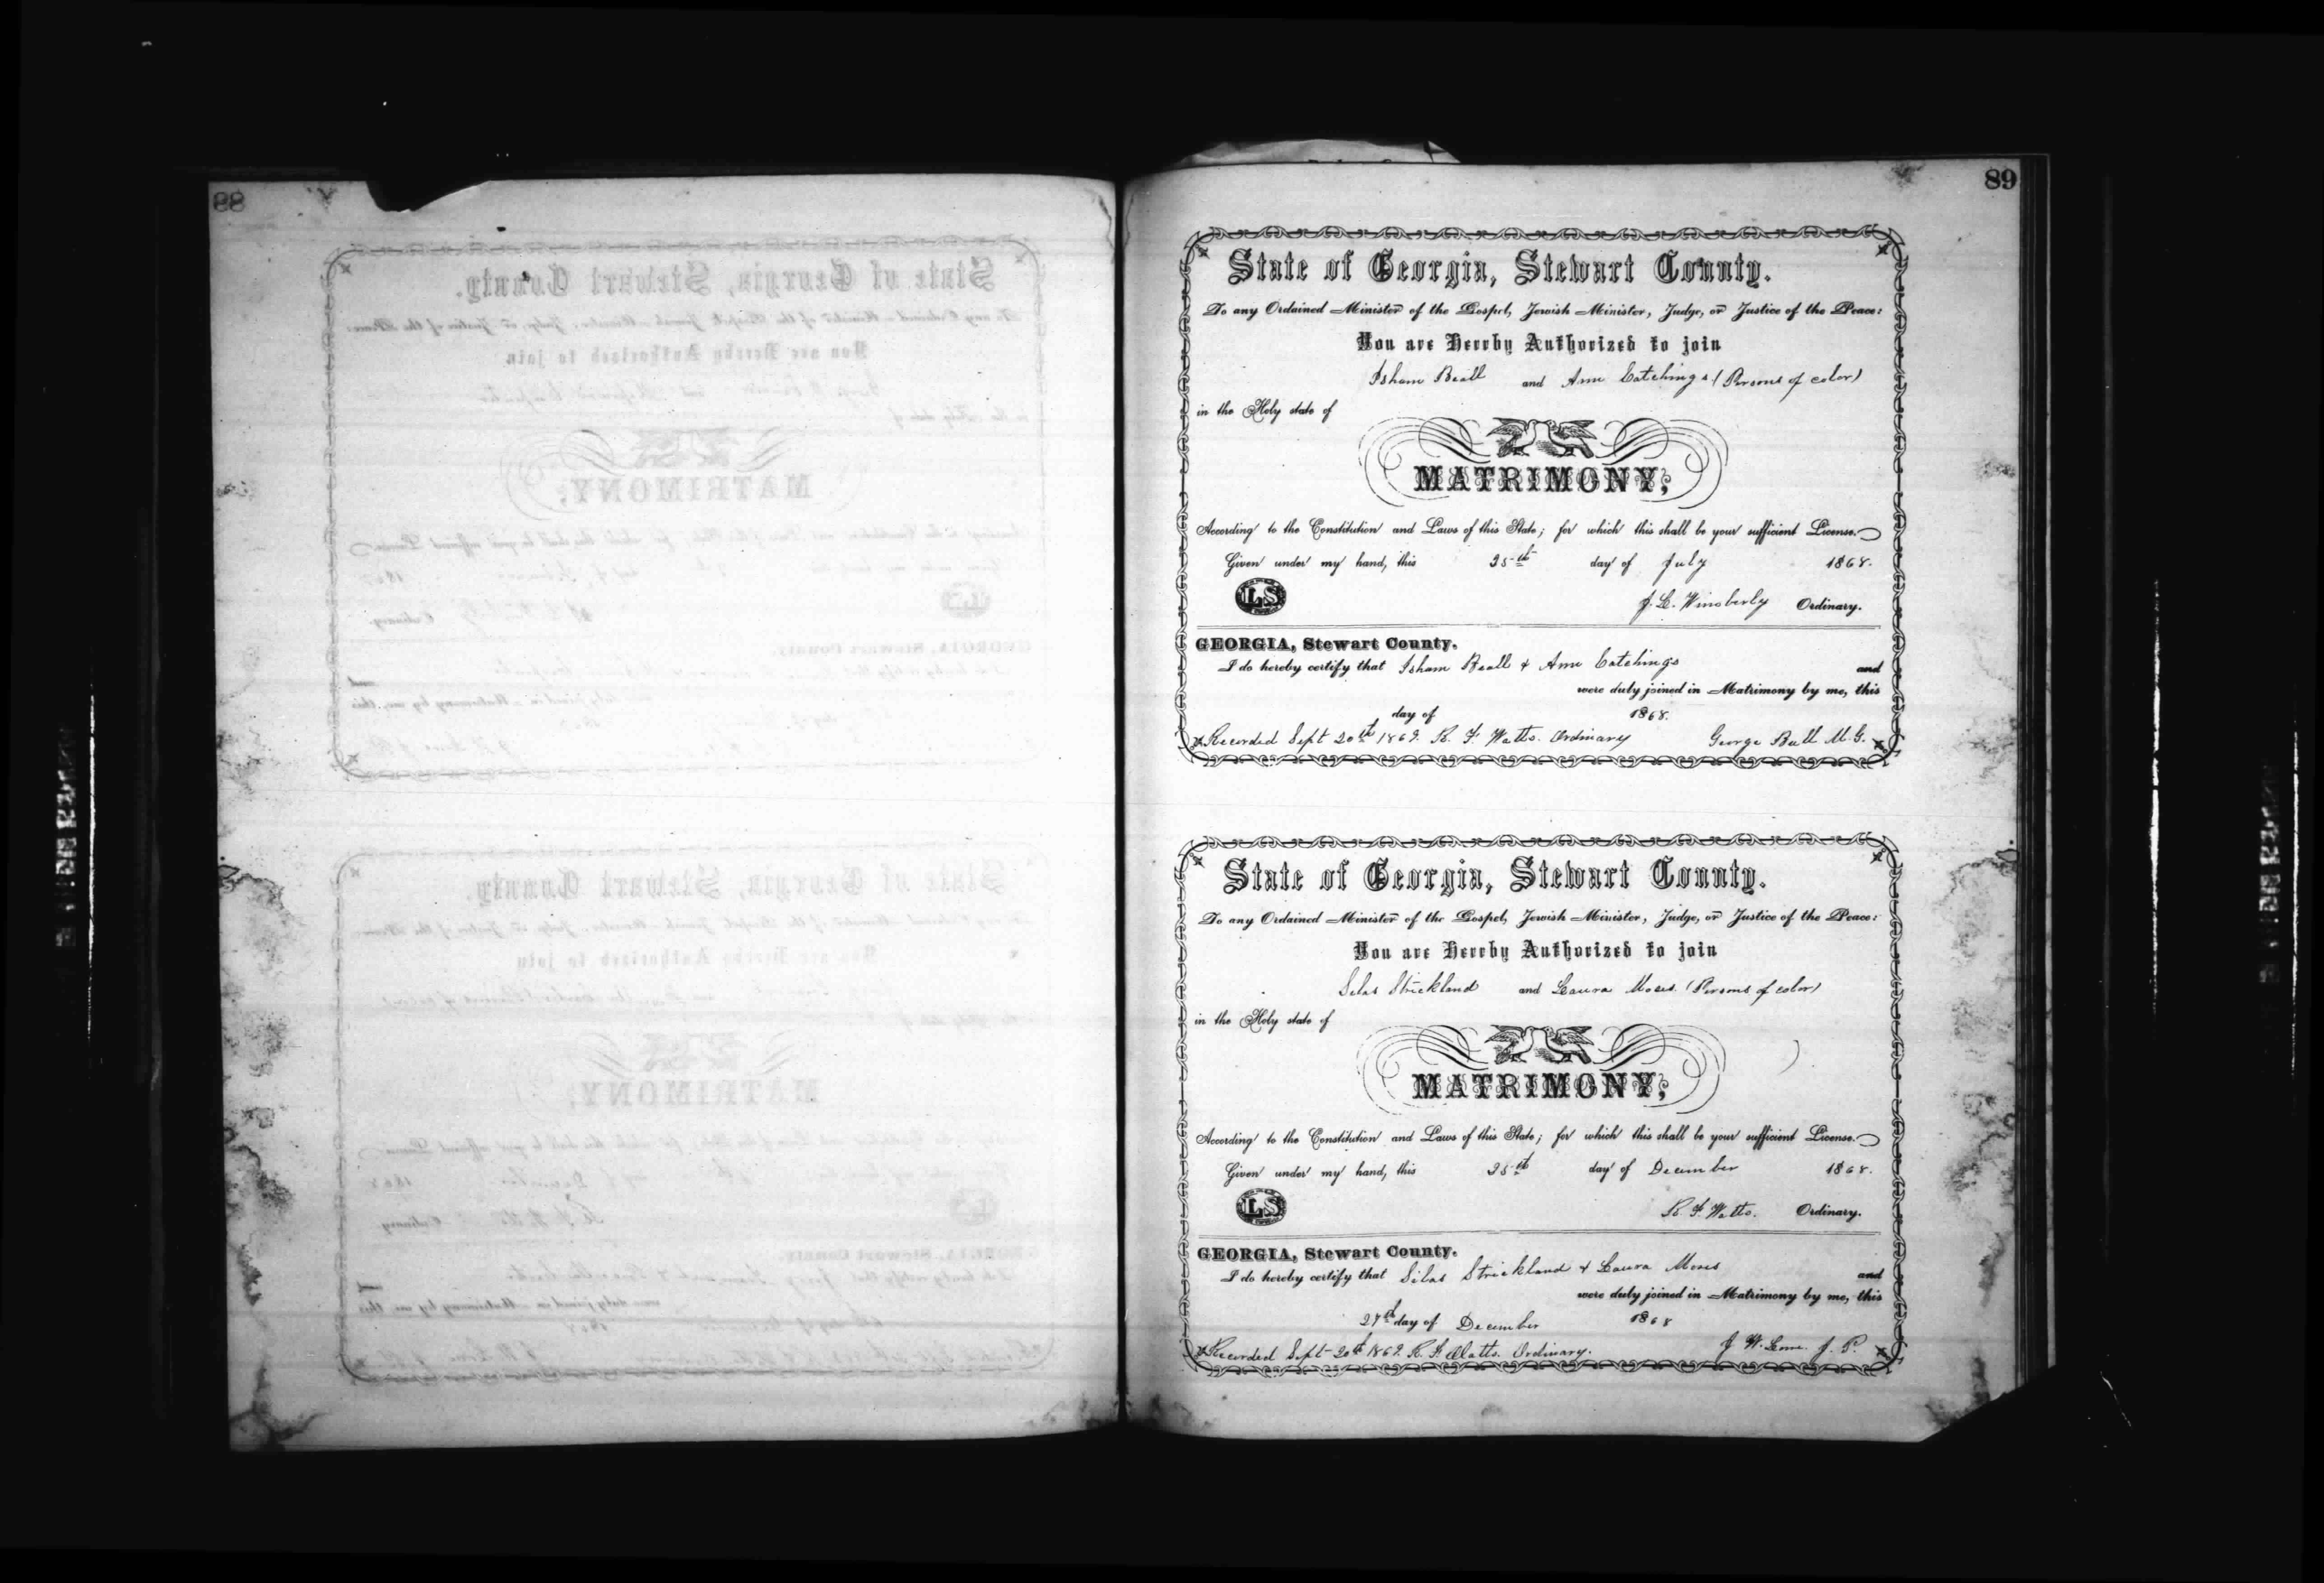 89
State of Georgia, Stewart County.
To any Ordained Minister of the Gospel, Jewish Minister, Judge, or Justice of the Peace:
You are Hereby Authorized to join
Isham Beall and Ann Catchings (Persons of color)
in the Holy state of
MATRIMONY,
According to the Constitution and Laws of this State; for which this shall be your sufficient License.
Given under my hand, this 25th day of July 1868.
LS
J. L. Wimberly Ordinary.
GEORGIA, Stewart County.
I do hereby certify that Isham Beall & Ann Catchings and
were duly joined in Matrimony by me, this
day of 1868.
Recorded Sept 20th 1869. R. F. Watts. Ordinary George Ball M.G.
State of Georgia, Stewart County.
To any Ordained Minister of the Gospel, Jewish Minister, Judge, or Justice of the Peace:
You are Hereby Authorized to join
Silas Strickland and Laura Moses. (Persons of color)
in the Holy state of
MATRIMONY,
According to the Constitution and Laws of this State; for which this shall be your sufficient License.
Given under my hand, this 25th day of December 1868.
LS
R. F. Watts. Ordinary.
GEORGIA, Stewart County.
I do hereby certify that Silas Strickland & Laura Moses and
were duly joined in Matrimony by me, this
27th day of December 1868
Recorded Sept 20th 1869. R. F. Watts. Ordinary. J. W. J. P.